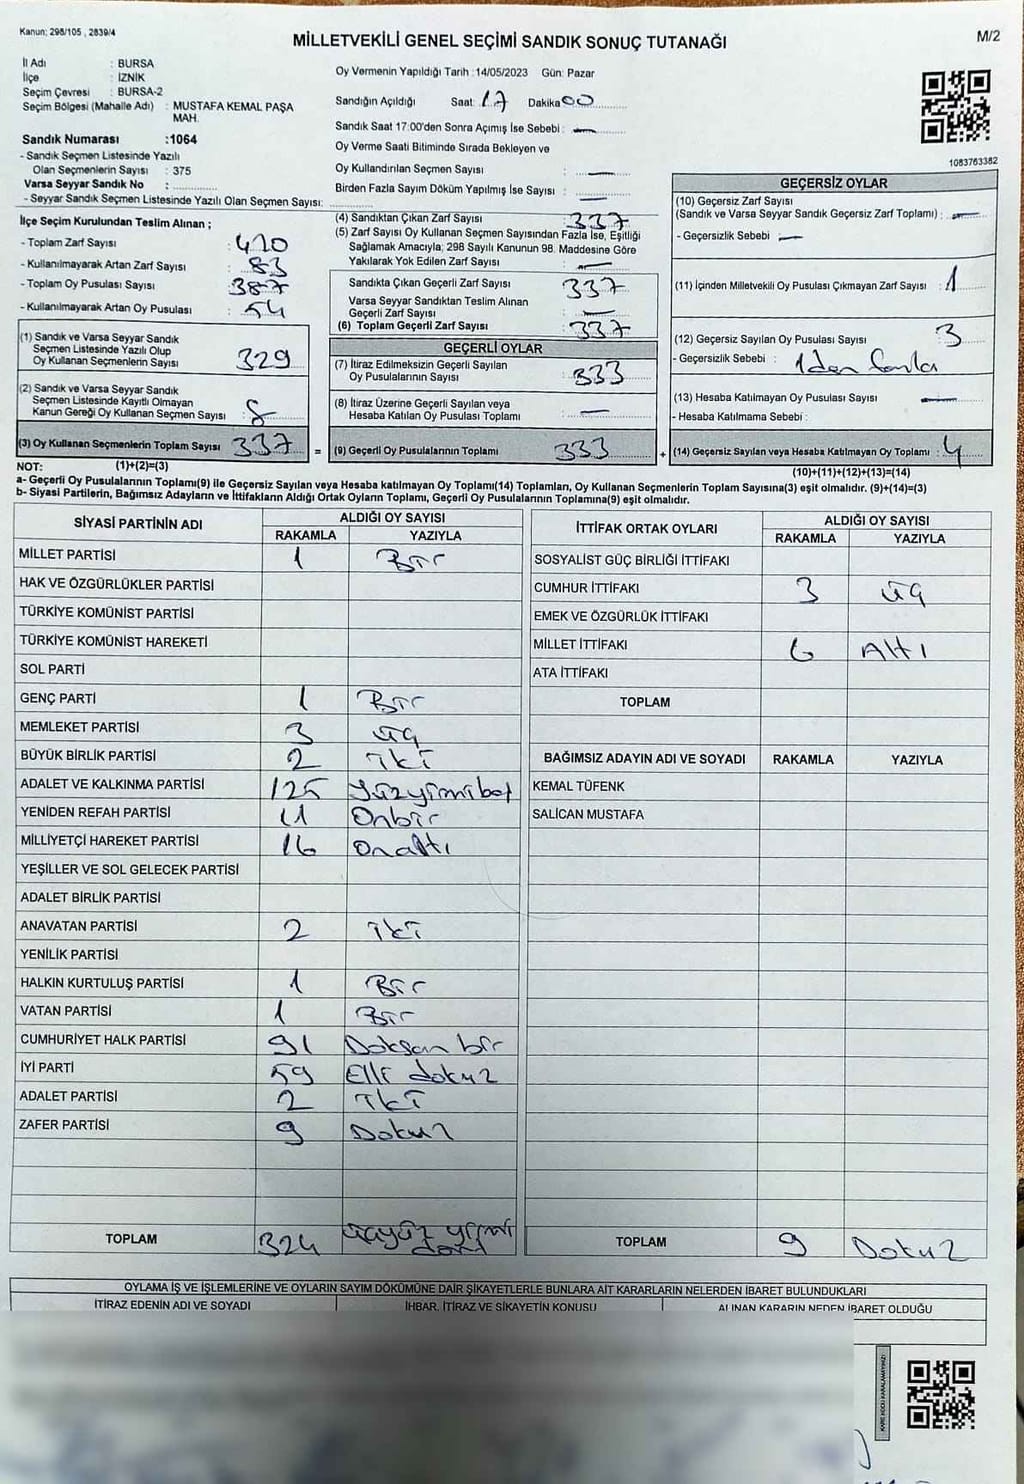 Kanun; 298/105 , 2839/4
MİLLETVEKİLİ GENEL SEÇİMİ SANDIK SONUÇ TUTANAĞI
M/2
İl Adı : BURSA
İlçe : İZNİK
Seçim Çevresi : BURSA-2
Seçim Bölgesi (Mahalle Adı) : MUSTAFA KEMAL PAŞA
MAH.
Sandık Numarası :1064
- Sandık Seçmen Listesinde Yazılı
Olan Seçmenlerin Sayısı : 375
Varsa Seyyar Sandık No :
- Seyyar Sandık Seçmen Listesinde Yazılı Olan Seçmen Sayısı:
Oy Vermenin Yapıldığı Tarih :14/05/2023 Gün: Pazar
Sandığın Açıldığı Saat: 17 Dakika 00
Sandık Saat 17:00'den Sonra Açımış İse Sebebi : —
Oy Verme Saati Bitiminde Sırada Bekleyen ve
Oy Kullandırılan Seçmen Sayısı : —
Birden Fazla Sayım Döküm Yapılmış İse Sayısı : —
1083763382
İlçe Seçim Kurulundan Teslim Alınan ;
- Toplam Zarf Sayısı : 420
- Kullanılmayarak Artan Zarf Sayısı : 83
- Toplam Oy Pusulası Sayısı : 387
- Kullanılmayarak Artan Oy Pusulası : 54
(1) Sandık ve Varsa Seyyar Sandık
Seçmen Listesinde Yazılı Olup
Oy Kullanan Seçmenlerin Sayısı : 329
(2) Sandık ve Varsa Seyyar Sandık
Seçmen Listesinde Kayıtlı Olmayan
Kanun Gereği Oy Kullanan Seçmen Sayısı : 8
(3) Oy Kullanan Seçmenlerin Toplam Sayısı : 337
(4) Sandıktan Çıkan Zarf Sayısı : 337
(5) Zarf Sayısı Oy Kullanan Seçmen Sayısından Fazla İse, Eşitliği
Sağlamak Amacıyla; 298 Sayılı Kanunun 98. Maddesine Göre
Yakılarak Yok Edilen Zarf Sayısı : —
Sandıkta Çıkan Geçerli Zarf Sayısı : 337
Varsa Seyyar Sandıktan Teslim Alınan
Geçerli Zarf Sayısı : —
(6) Toplam Geçerli Zarf Sayısı : 337
GEÇERLİ OYLAR
(7) İtiraz Edilmeksizin Geçerli Sayılan
Oy Pusulalarının Sayısı : 333
(8) İtiraz Üzerine Geçerli Sayılan veya
Hesaba Katılan Oy Pusulası Toplamı : —
= (9) Geçerli Oy Pusulalarının Toplamı 333
GEÇERSİZ OYLAR
(10) Geçersiz Zarf Sayısı
(Sandık ve Varsa Seyyar Sandık Geçersiz Zarf Toplamı) : —
- Geçersizlik Sebebi : —
(11) İçinden Milletvekili Oy Pusulası Çıkmayan Zarf Sayısı : 1
(12) Geçersiz Sayılan Oy Pusulası Sayısı : 3
- Geçersizlik Sebebi : 1den fazla
(13) Hesaba Katılmayan Oy Pusulası Sayısı : —
- Hesaba Katılmama Sebebi :
+ (14) Geçersiz Sayılan veya Hesaba Katılmayan Oy Toplamı : 4
NOT: (1)+(2)=(3)
(10)+(11)+(12)+(13)=(14)
a- Geçerli Oy Pusulaları Toplamı(9) ile Geçersiz Sayılan veya Hesaba katılmayan Oy Toplamı(14) Toplamları, Oy Kullanan Seçmenlerin Toplam Sayısına(3) eşit olmalıdır. (9)+(14)=(3)
b- Siyasi Partilerin, Bağımsız Adayların ve İttifakların Aldığı Ortak Oyların Toplamı, Geçerli Oy Pusulalarının Toplamına(9) eşit olmalıdır.
SİYASİ PARTİNİN ADI ALDIĞI OY SAYISI
RAKAMLA YAZIYLA
MİLLET PARTİSİ 1 Bir
HAK VE ÖZGÜRLÜKLER PARTİSİ
TÜRKİYE KOMÜNİST PARTİSİ
TÜRKİYE KOMÜNİST HAREKETİ
SOL PARTİ
GENÇ PARTİ 1 Bir
MEMLEKET PARTİSİ 3 üç
BÜYÜK BİRLİK PARTİSİ 2 iki
ADALET VE KALKINMA PARTİSİ 125 yüzyirmibeş
YENİDEN REFAH PARTİSİ 11 Onbir
MİLLİYETÇİ HAREKET PARTİSİ 16 Onaltı
YEŞİLLER VE SOL GELECEK PARTİSİ
ADALET BİRLİK PARTİSİ
ANAVATAN PARTİSİ 2 iki
YENİLİK PARTİSİ
HALKIN KURTULUŞ PARTİSİ 1 Bir
VATAN PARTİSİ 1 Bir
CUMHURİYET HALK PARTİSİ 91 Doksan bir
İYİ PARTİ 59 Elli dokuz
ADALET PARTİSİ 2 iki
ZAFER PARTİSİ 9 Dokuz
TOPLAM 324 üçyüz yirmi
dört
İTTİFAK ORTAK OYLARI ALDIĞI OY SAYISI
RAKAMLA YAZIYLA
SOSYALİST GÜÇ BİRLİĞİ İTTİFAKI
CUMHUR İTTİFAKI 3 üç
EMEK VE ÖZGÜRLÜK İTTİFAKI
MİLLET İTTİFAKI 6 Altı
ATA İTTİFAKI
TOPLAM
BAĞIMSIZ ADAYIN ADI VE SOYADI RAKAMLA YAZIYLA
KEMAL TÜFENK
SALİCAN MUSTAFA
TOPLAM 9 Dokuz
OYLAMA İŞ VE İŞLEMLERİNE VE OYLARIN SAYIM DÖKÜMÜNE DAİR ŞİKAYETLERLE BUNLARA AİT KARARLARIN NELERDEN İBARET BULUNDUKLARI
İTİRAZ EDENİN ADI VE SOYADI İHBAR, İTİRAZ VE ŞİKAYETİN KONUSU ALINAN KARARIN NEDEN İBARET OLDUĞU
KARE KODU KARALAMAYINIZ!